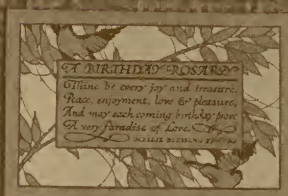 A BIRTHDAY ROSARY
Thine be every joy and treasure,
Peace, enjoyment, love & pleasure,
And may each coming birthday prove
A very Paradise of Love.